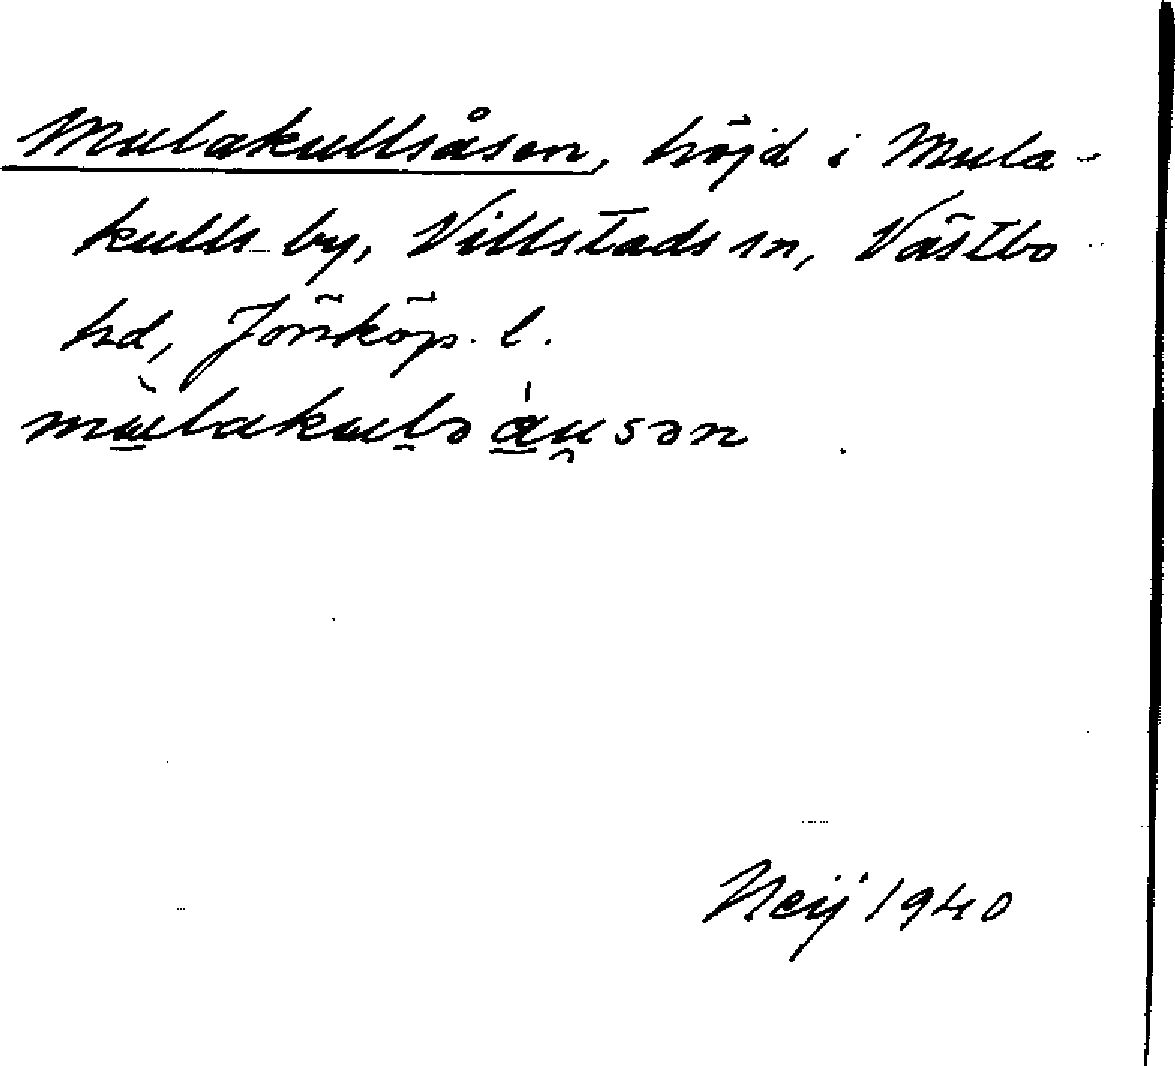 Mulakullsåsen, höjd i Mula-
kulls by, Villstads sn, Västbo
hd, Jönköp. l.
mù̱lakulsá̱u̯sən
Heij 1940